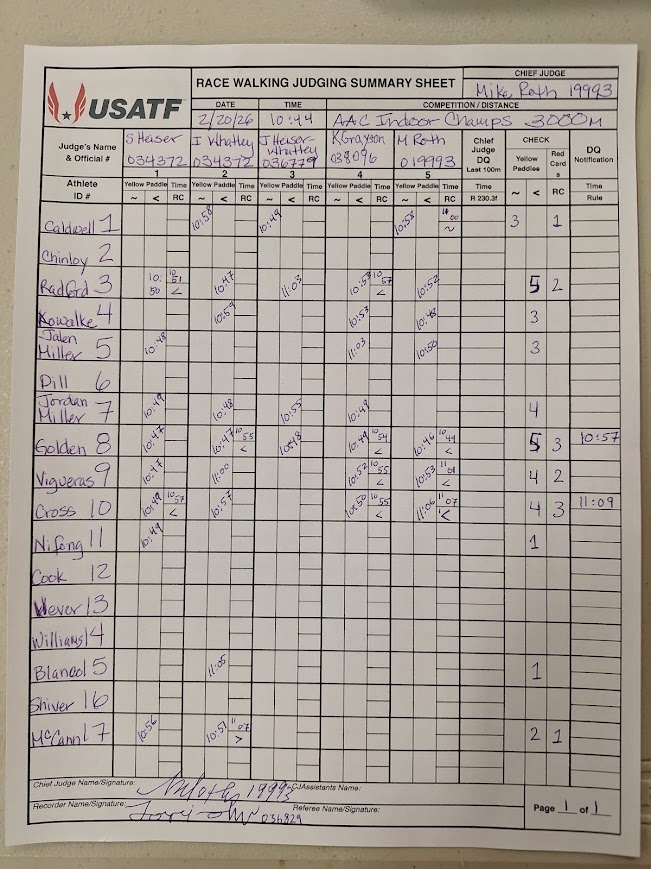 USATF
RACE WALKING JUDGING SUMMARY SHEET
CHIEF JUDGE
Mike Roth 19993
DATE TIME COMPETITION / DISTANCE
2/20/26 10:44 AAC Indoor Champs 3000M
Judge's Name & Official # S Heiser I Whatley J Heiser-Whatley K Grayson M Roth Chief Judge DQ Last 100m CHECK DQ Notification
034372 034372 036779 038096 019993 Yellow Paddles Red Cards
1 2 3 4 5
Athlete ID # Yellow Paddle Time Yellow Paddle Time Yellow Paddle Time Yellow Paddle Time Yellow Paddle Time Time ~ < RC Time
~ < RC ~ < RC ~ < RC ~ < RC ~ < RC R 230.3f Rule
Caldwell 1 10:58 10:49 10:58 ~ 3 1
Chinloy 2
Radford 3 10:50 10:51 < 10:47 11:03 10:53 10:57 < 10:52 5 2
Kowalke 4 10:59 10:53 10:48 3
Jalen Miller 5 10:48 11:03 10:50 3
Dill 6
Jordan Miller 7 10:49 10:48 10:55 10:49 4
Golden 8 10:47 10:47 10:55 < 10:48 10:49 10:54 < 10:46 10:49 < 5 3 10:57
Vigueras 9 10:47 11:00 10:52 10:55 < 10:53 11:01 < 4 2
Cross 10 10:49 10:57 < 10:57 10:50 10:55 < 11:06 11:07 < 4 3 11:09
Nifong 11 10:49 1
Cook 12
Wever 13
Williams 14
Blanco 15 11:05 1
Shiver 16
McCann 17 10:56 10:51 11:07 > 2 1
Chief Judge Name/Signature: 19993 CJAssistants Name:
Recorder Name/Signature: 036829 Referee Name/Signature:
Page 1 of 1